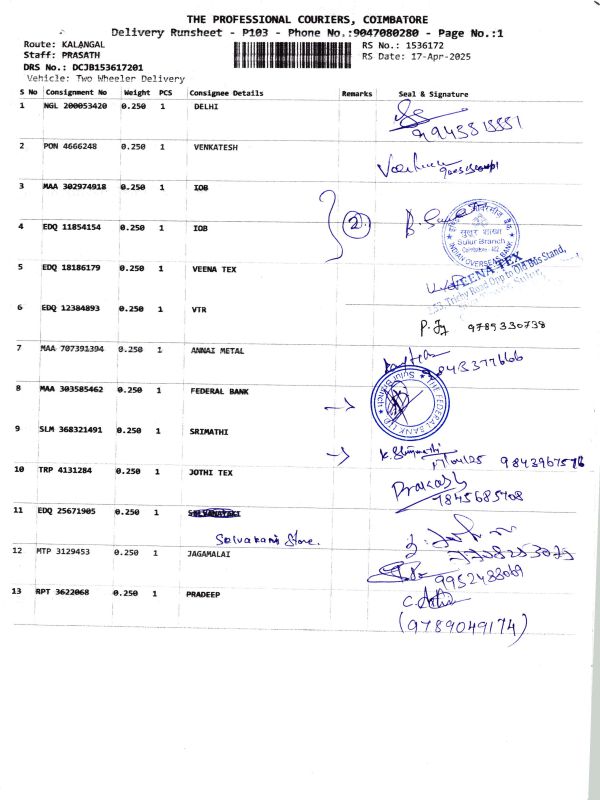 THE PROFESSIONAL COURIERS, COIMBATORE
Delivery Runsheet - P103 - Phone No.:9047080280 - Page No.:1
Route: KALANGAL
Staff: PRASATH
DRS No.: DCJB153617201
Vehicle: Two Wheeler Delivery
RS No.: 1536172
RS Date: 17-Apr-2025
S No Consignment No Weight PCS Consignee Details Remarks Seal & Signature
1 NGL 200053420 0.250 1 DELHI
2 PON 4666248 0.250 1 VENKATESH
3 MAA 302974918 0.250 1 IOB
2
4 EDQ 11854154 0.250 1 IOB
Sulur Branch
INDIAN OVERSEAS BANK
5 EDQ 18186179 0.250 1 VEENA TEX
VEENA TEX
Trichy Road Opp to Old Bus Stand,
6 EDQ 12384893 0.250 1 VTR
9789330738
7 MAA 707391394 0.250 1 ANNAI METAL
9843377666
8 MAA 303585462 0.250 1 FEDERAL BANK
THE FEDERAL BANK LTD
Sulur Branch
9 SLM 368321491 0.250 1 SRIMATHI
17/04/25 9843967576
10 TRP 4131284 0.250 1 JOTHI TEX
Prakash
9845685708
11 EDQ 25671905 0.250 1 SELVANAYAKI
Selvakani Store.
12 MTP 3129453 0.250 1 JAGAMALAI
9952433069
13 RPT 3622068 0.250 1 PRADEEP
(9789049174)